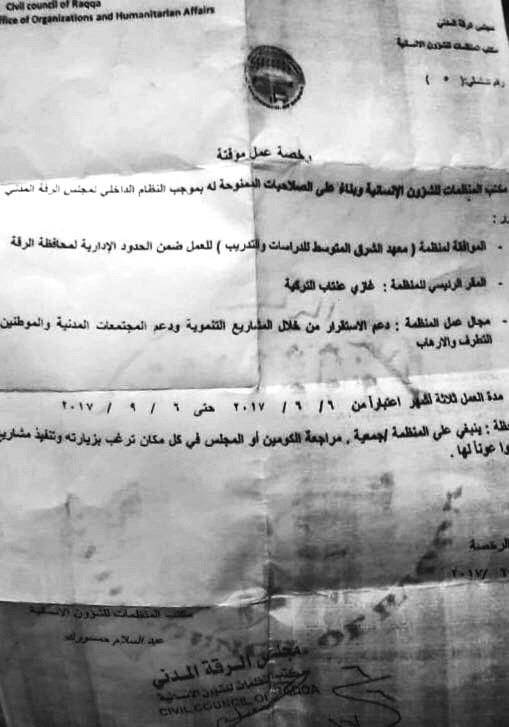 Civil council of Raqqa
ffice of Organizations and Humanitarian Affairs
مجلس الرقة المدني
مكتب المنظمات للشؤون الانسانية
رقم تسلسلي: ( ٥ )
رخصة عمل موقتة
مكتب المنظمات للشؤون الإنسانية وبناءً على الصلاحيات الممنوحة له بموجب النظام الداخلي لمجلس الرقة المدني
- الموافقة لمنظمة ( معهد الشرق المتوسط للدراسات والتدريب ) للعمل ضمن الحدود الإدارية لمحافظة الرقة
- المقر الرئيسي للمنظمة : غازي عنتاب التركية
- مجال عمل المنظمة : دعم الاستقرار من خلال المشاريع التنموية ودعم المجتمعات المدنية والموطنين
التطرف والارهاب
مدة العمل ثلاثة أشهر اعتباراً من ٦ / ٦ / ٢٠١٧ حتى ٦ / ٩ / ٢٠١٧
ظة : ينبغي على المنظمة /جمعية , مراجعة الكومين أو المجلس في كل مكان ترغب بزيارته وتنفيذ مشاريع
وا عوناً لها .
الرخصة
٢٠١٧/ ٦
مكتب المنظمات للشؤون الانسانية
عبد السلام
مجلس الرقة المدني
مكتب المنظمات للشؤون الإنسانية
CIVIL COUNCIL OF RAQQA